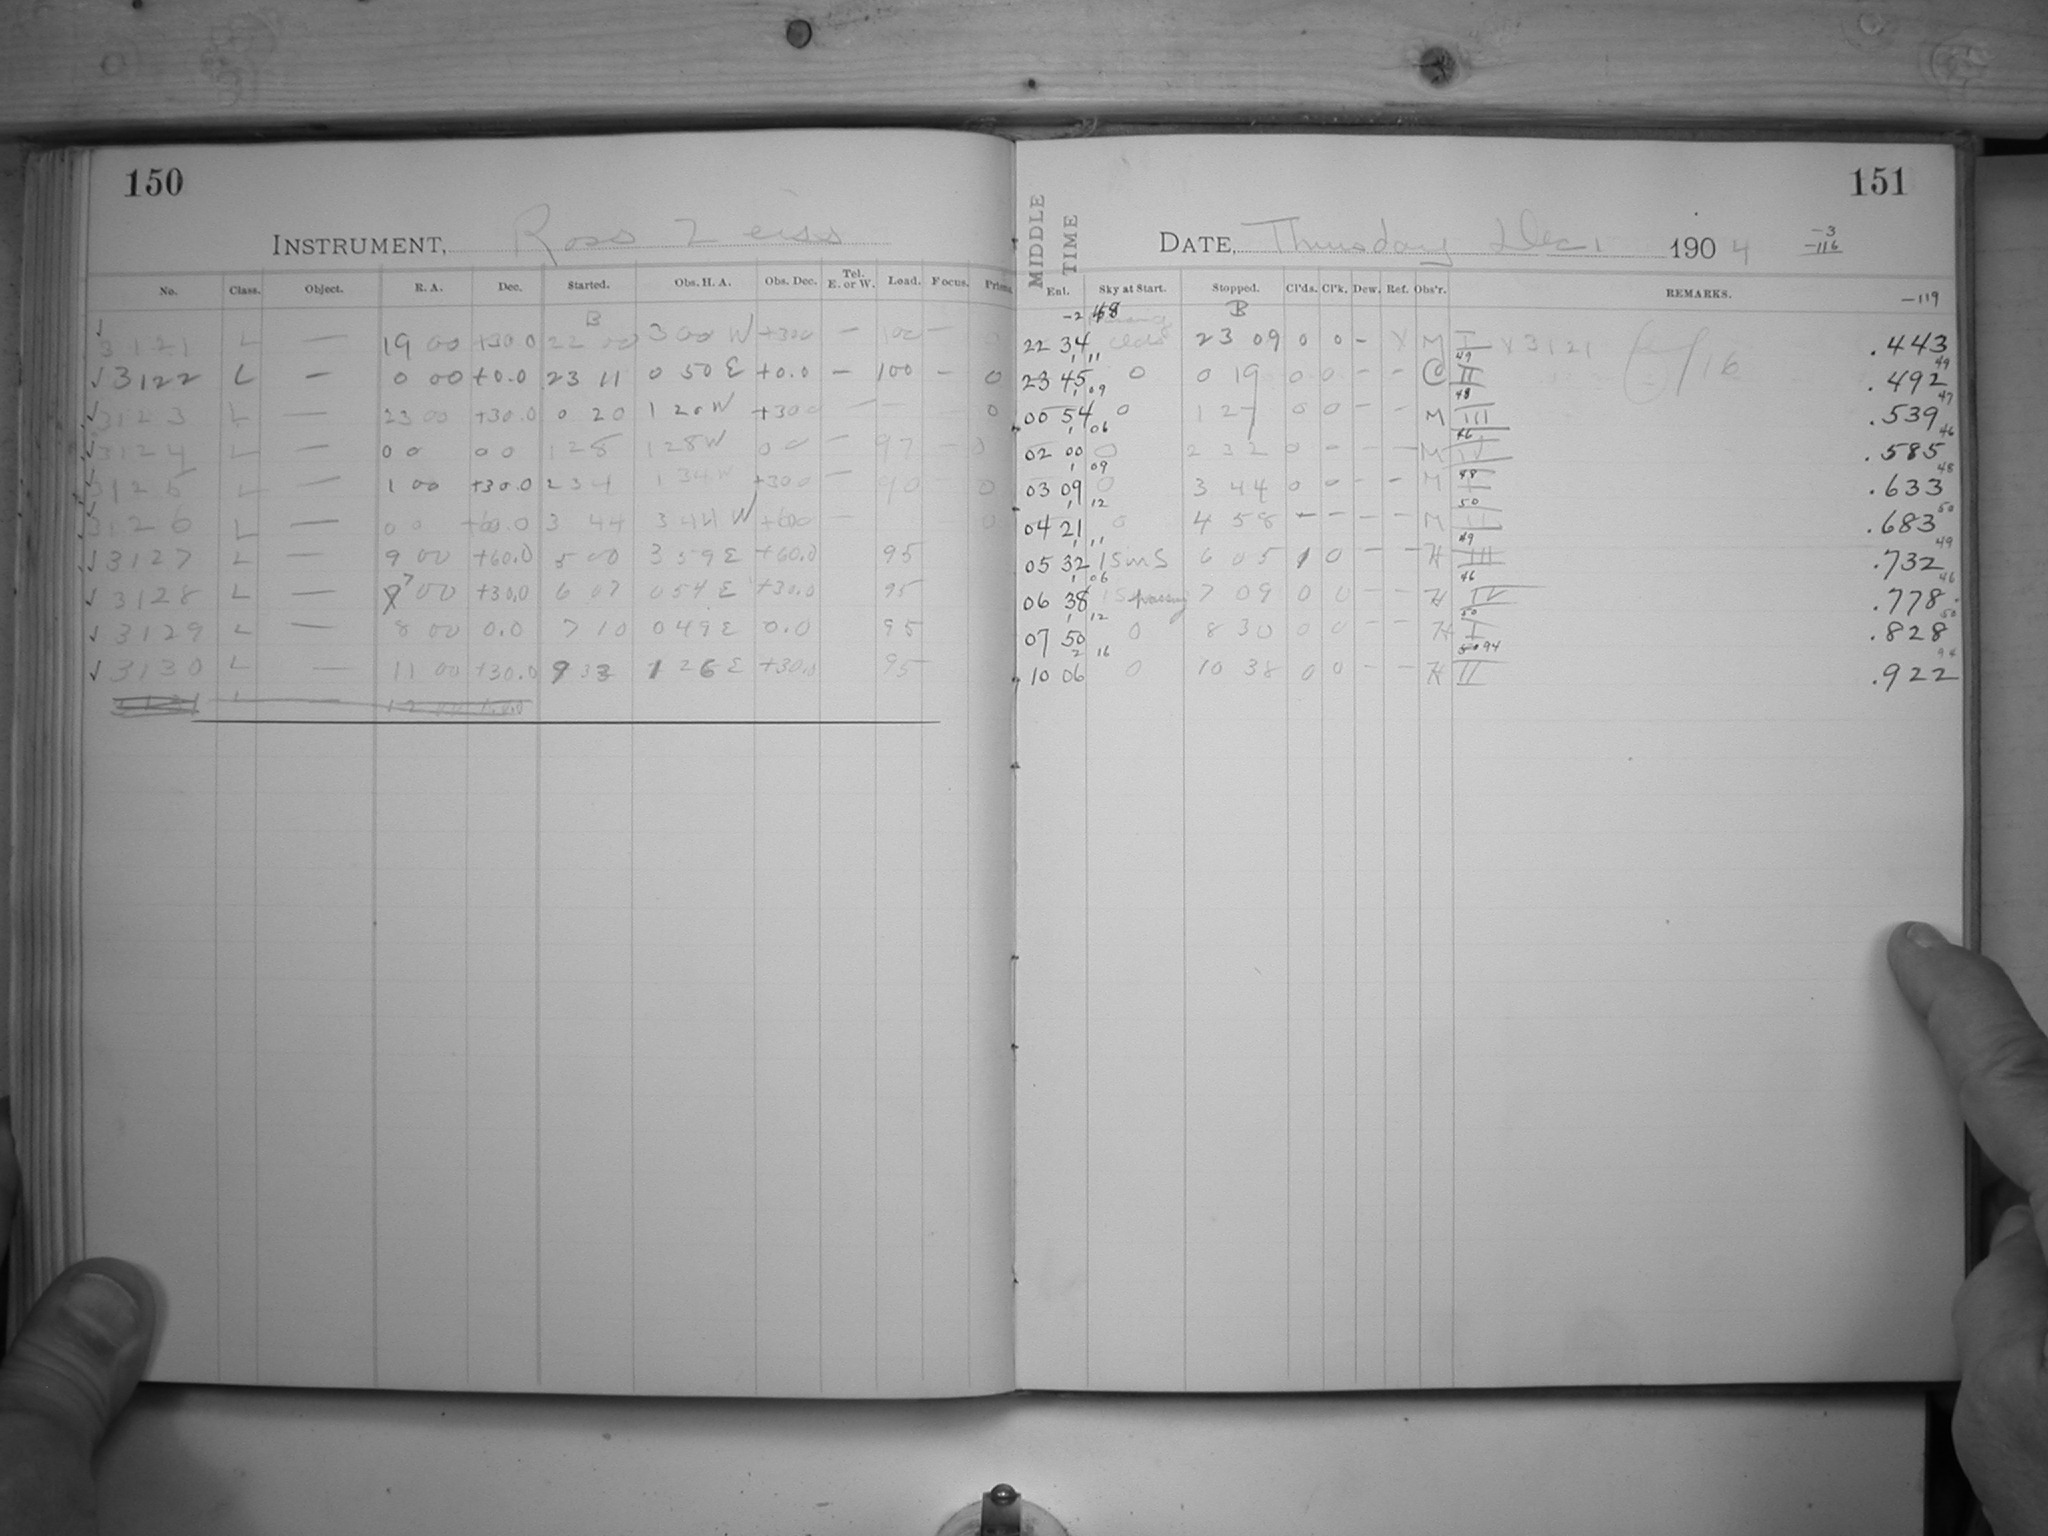 150
INSTRUMENT, Ross Zeiss
No. Class. Object. R. A. Dec. Started. Obs. H. A. Obs. Dec. Tel. E. or W. Load. Focus. Prism.
B
3121 L — 19 00 +30 0 22 00 3 00 W +300 — 100 — 0
✓ 3122 L — 0 00 +0.0 23 11 0 50 E +0.0 — 100 — 0
3123 L — 23 00 +30.0 0 20 1 20 W +300 — 0
3124 L — 00 00 1 28 1 28 W 00 — 97 — 0
3125 L — 1 00 +30.0 2 34 1 34 W +300 — 90 0
3126 L — 00 +60.0 3 44 3 44 W +600 — 0
✓ 3127 L — 9 00 +60.0 5 00 3 59 E +60.0 95
✓ 3128 L — 7 00 +30.0 6 07 0 54 E +30.0 95
✓ 3129 L — 8 00 0.0 7 10 0 49 E 0.0 95
✓ 3130 L — 11 00 +30.0 9 33 1 26 E +30.0 95
3131 L — 12 00 0.0
MIDDLE TIME
151
DATE, Thursday Dec 1 1904
-3
-116
-119
Ent. Sky at Start. Stopped. Cl'ds. Cl'k. Dew. Ref. Obs'r. REMARKS.
B
22 34 clds 23 09 0 0 - X M I X 3121 .443
23 45 0 0 19 0 0 - - C II .492
00 54 0 1 27 0 0 - - M III .539
02 00 0 2 32 0 - - - M IV .585
03 09 0 3 44 0 0 - - M I .633
04 21 0 4 58 - - - - M II .683
05 32 15mS 6 05 1 0 - - H III .732
06 38 15 passing 7 09 0 0 - - H IV .778
07 50 0 8 30 0 0 - - H I .828
10 06 0 10 38 0 0 - - H II .922